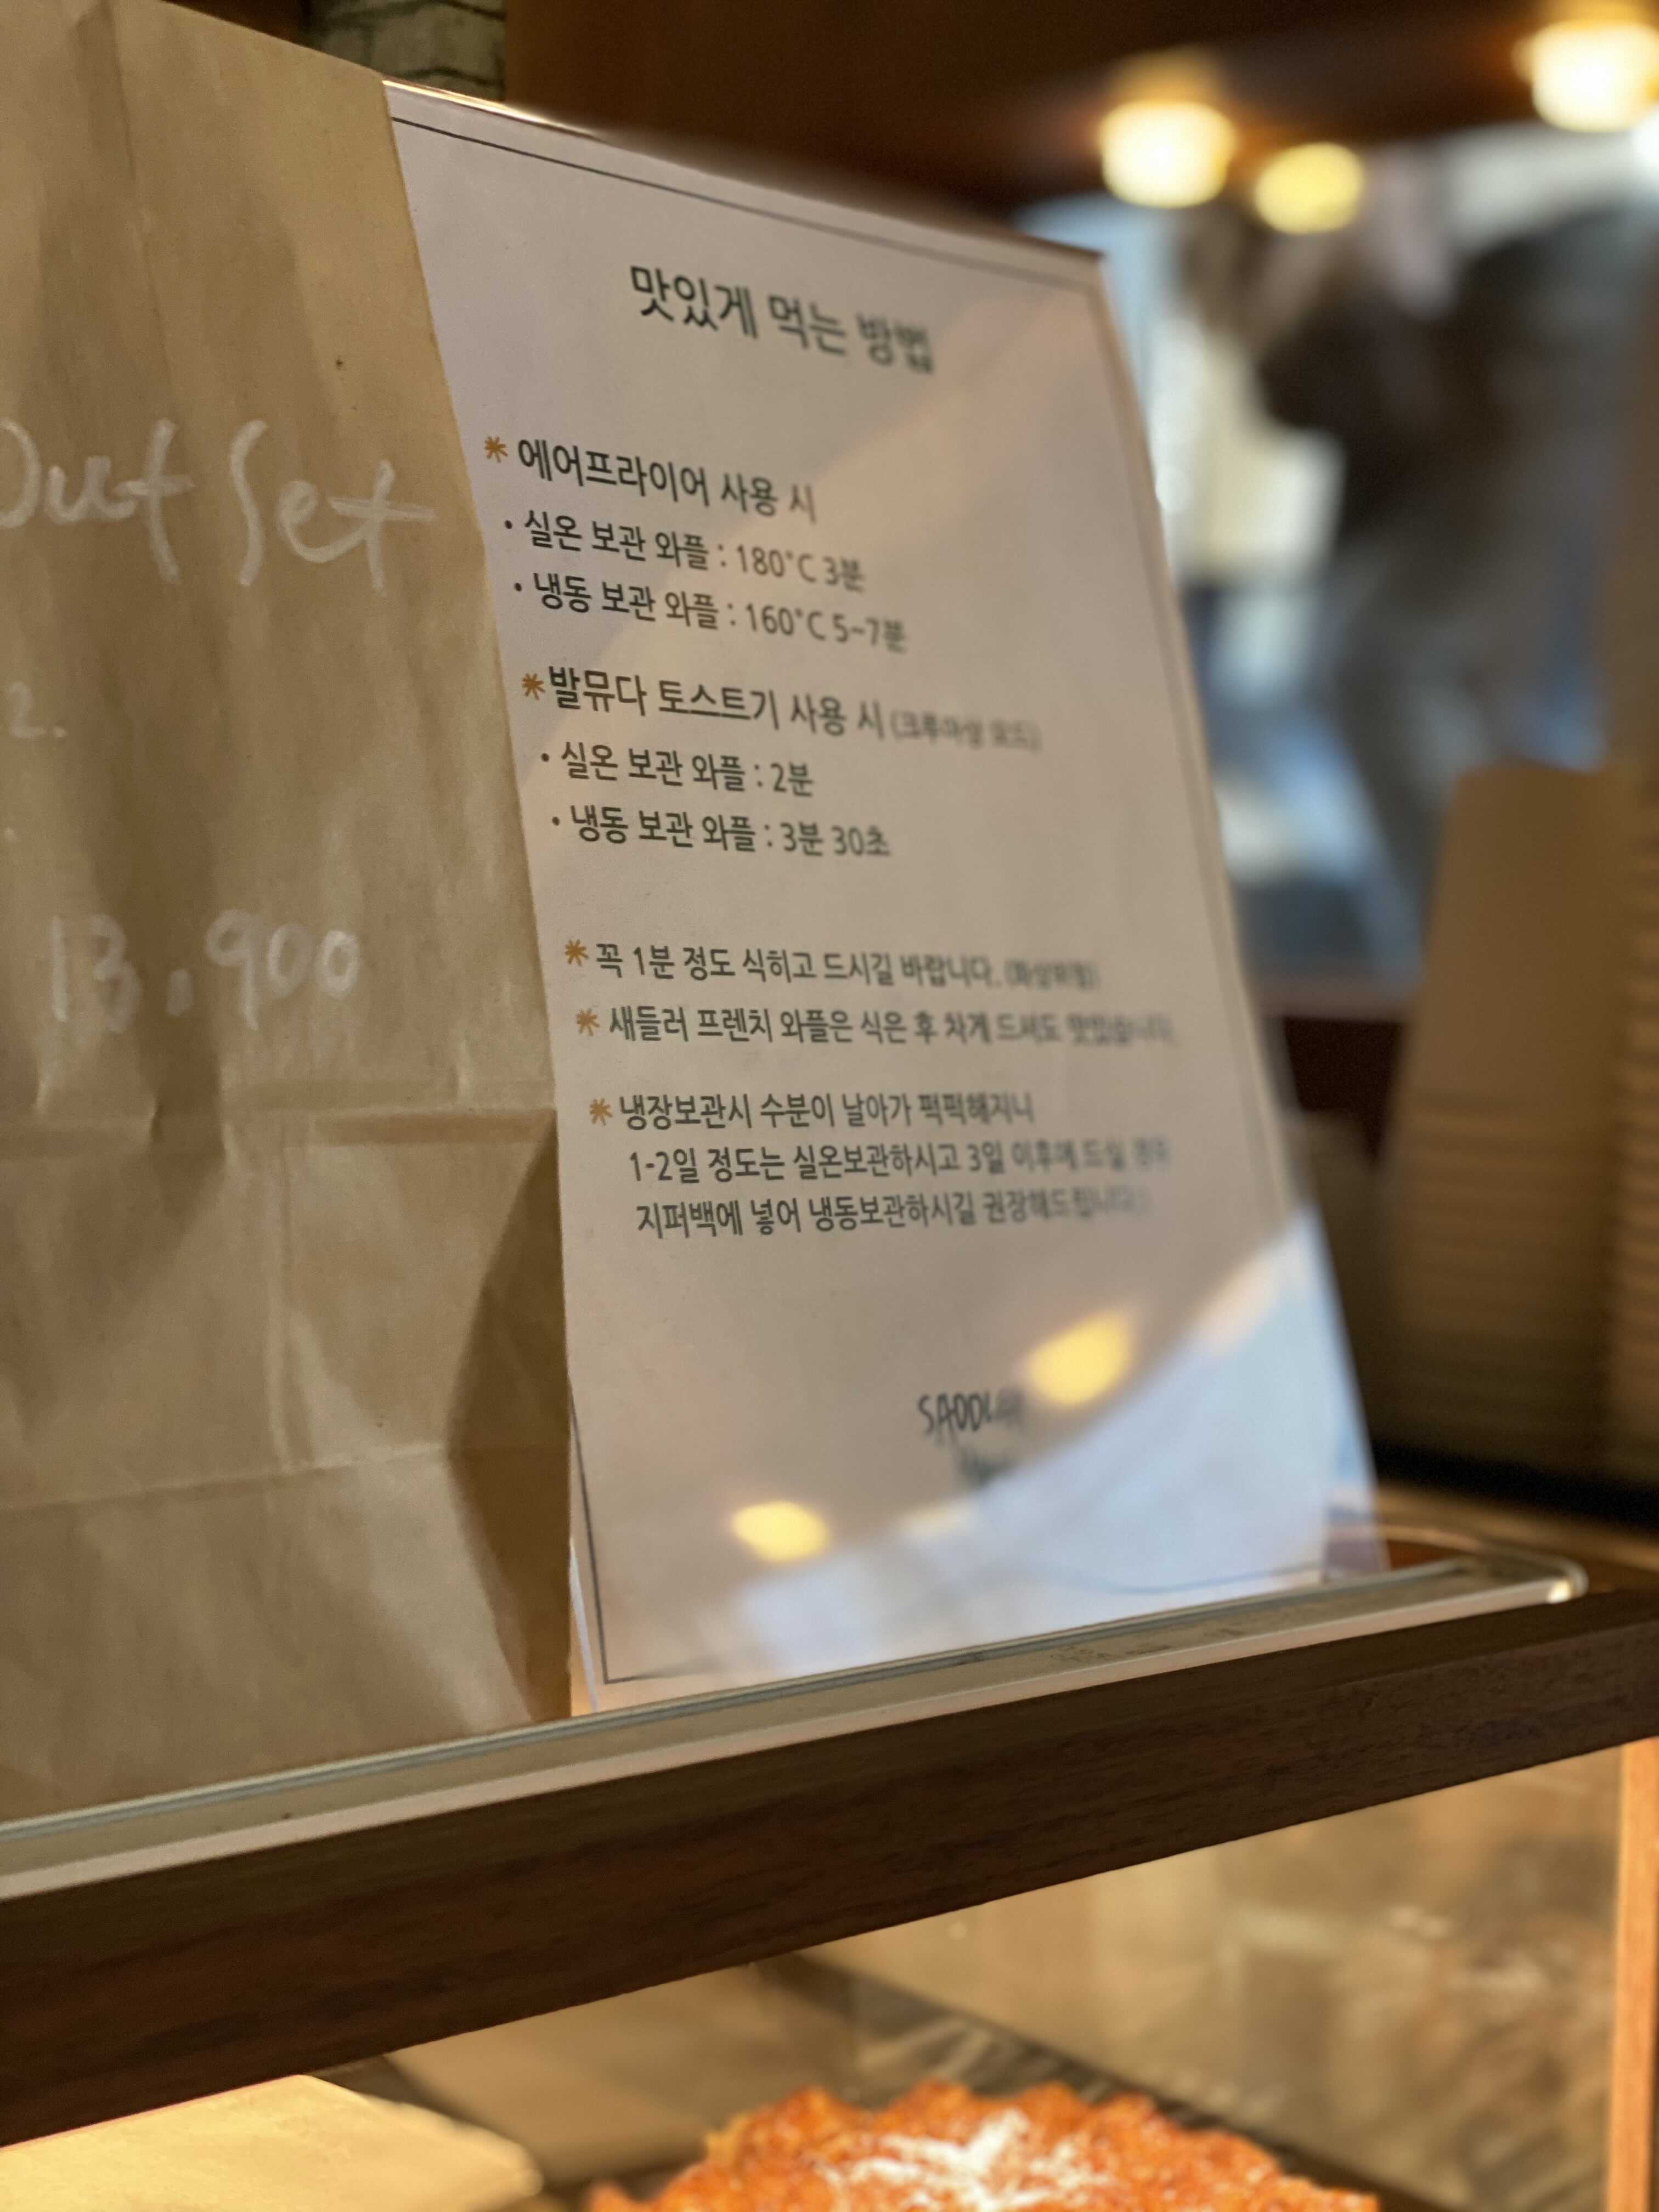 Out Set
2.
13.900
맛있게 먹는 방법
* 에어프라이어 사용 시
• 실온 보관 와플 : 180°C 3분
• 냉동 보관 와플 : 160°C 5~7분
* 발뮤다 토스트기 사용 시 (크루아상 모드)
• 실온 보관 와플 : 2분
• 냉동 보관 와플 : 3분 30초
* 꼭 1분 정도 식히고 드시길 바랍니다. (화상위험)
* 새들러 프렌치 와플은 식은 후 차게 드셔도 맛있습니다.
* 냉장보관시 수분이 날아가 퍽퍽해지니
1-2일 정도는 실온보관하시고 3일 이후에 드실 경우
지퍼백에 넣어 냉동보관하시길 권장해드립니다:)